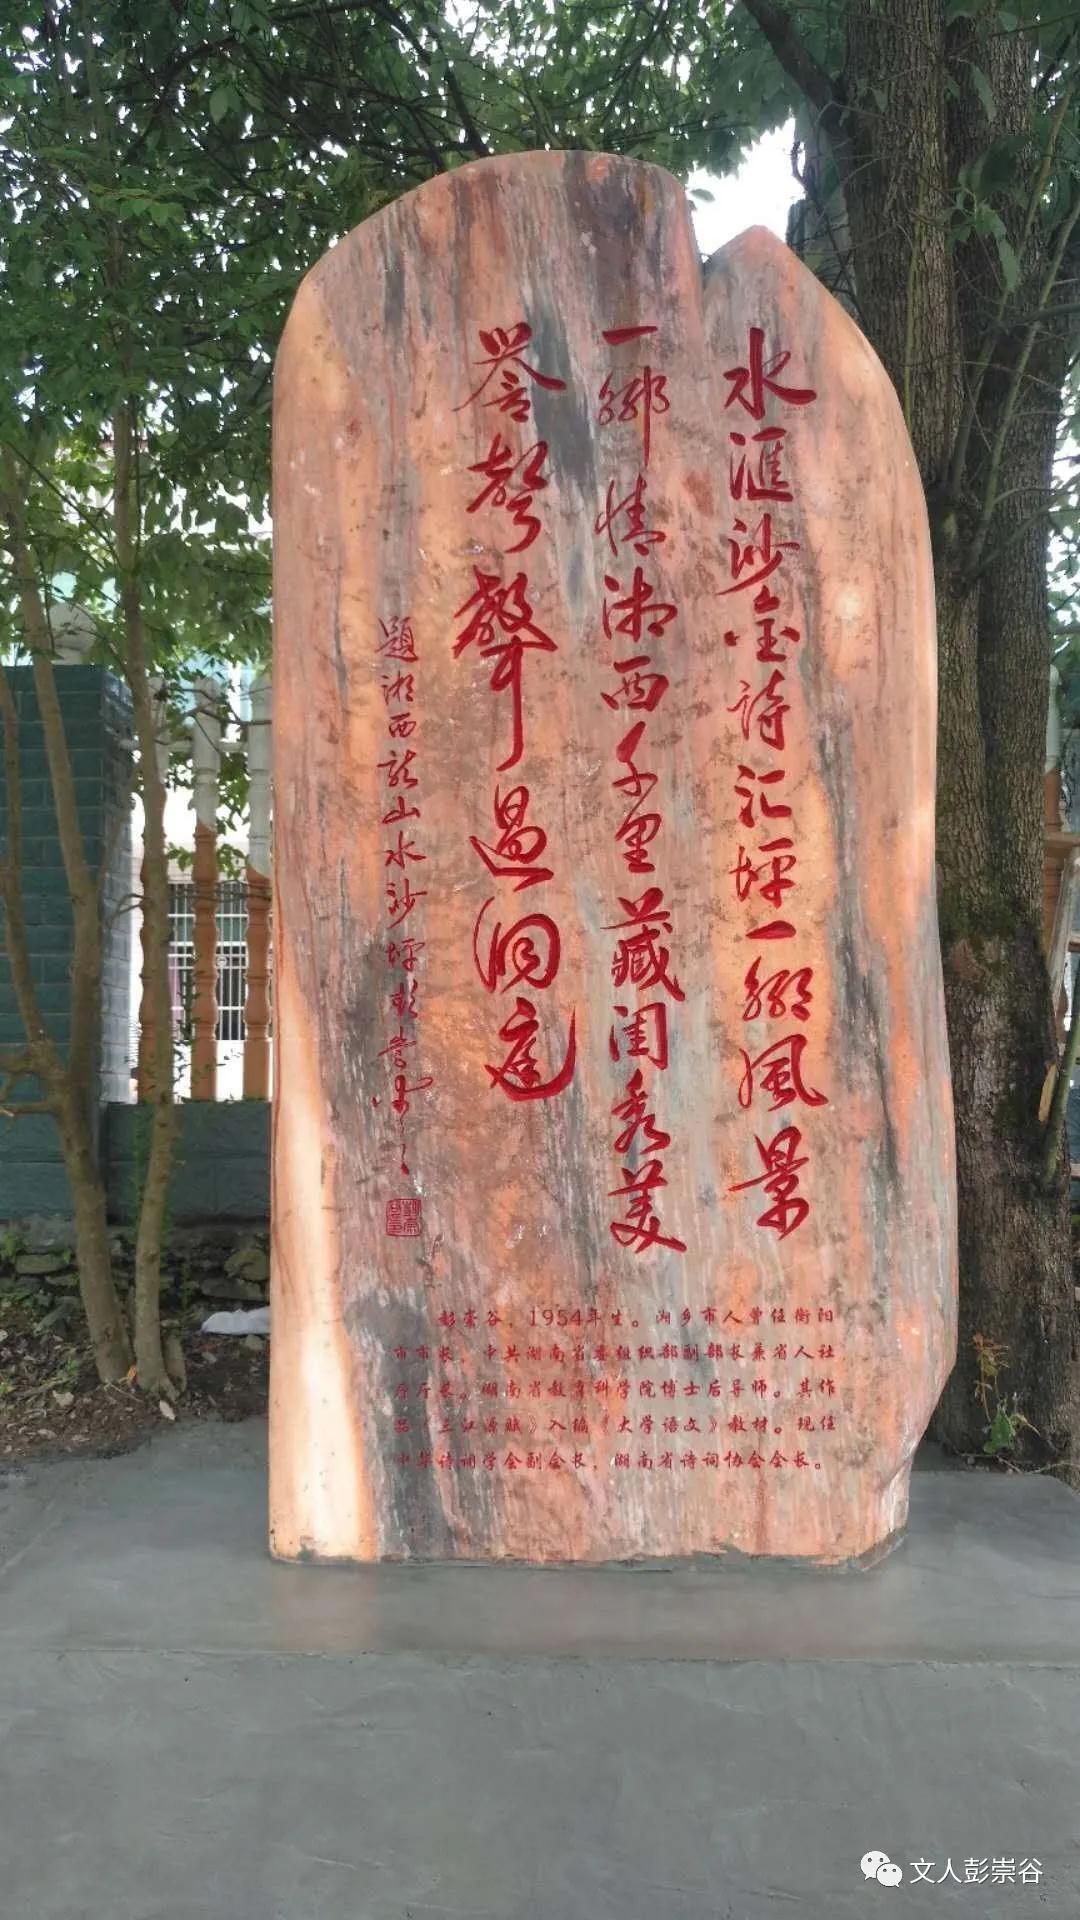 水滙沙金詩汇坪一鄉風景
一鄉情湘西千里藏闺秀美
譽聲聲過洞庭
題湘西龙山水沙坪彭崇谷
彭崇谷，1954年生。湘乡市人曾任衡阳
市市长，中共湖南省委组织部副部长兼省人社
厅厅长。湖南省教育科学院博士后导师。其作
品《三江源赋》入编《大学语文》教材。现任
中华诗词学会副会长，湖南省诗词协会会长。
文人彭崇谷